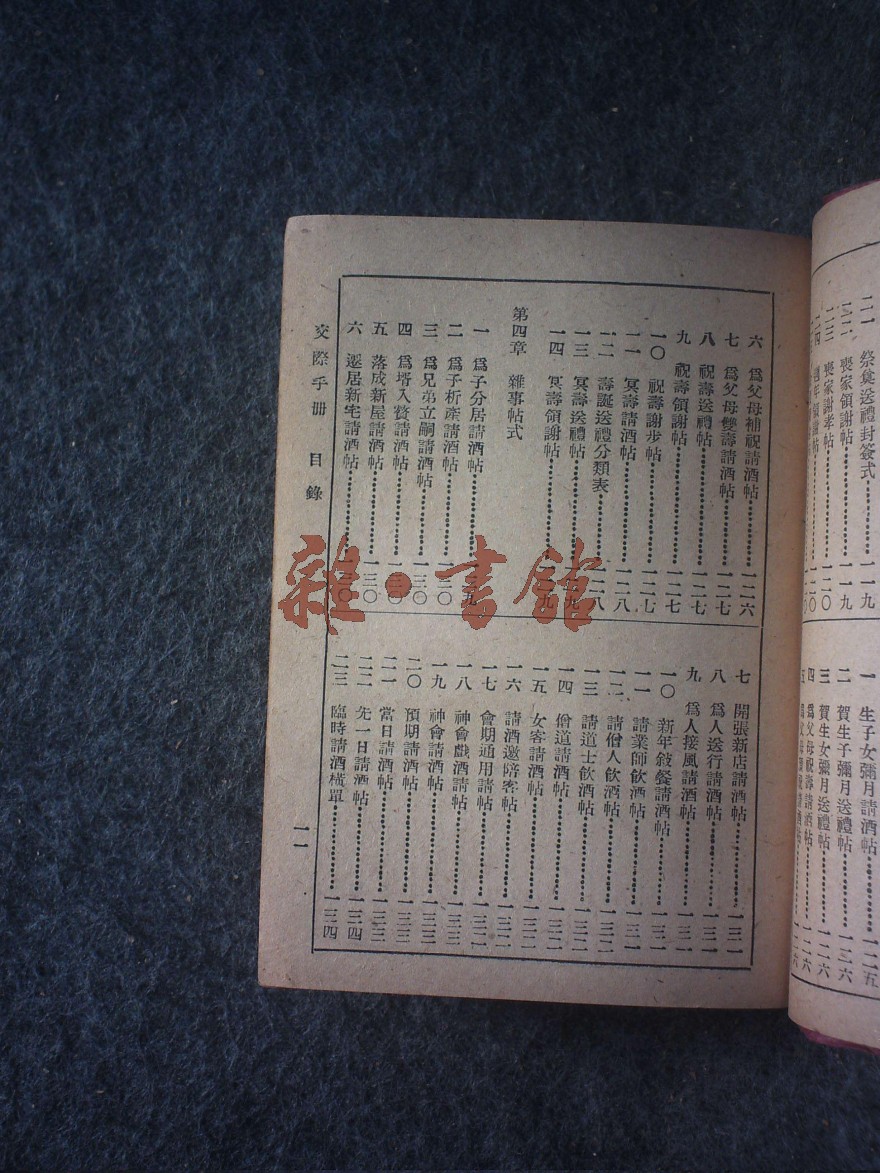 二一 祭奠送禮封簽式 一一九
二二 喪家領謝帖 一一九
二三 喪家謝孝帖 一二〇
一 生子女彌月請酒帖 一二五
二 賀生子彌月送禮帖 一二六
三 賀生女彌月送禮帖 一二六
四 為父母祝壽請酒帖 一二六
六 為父母補祝請酒帖 一二六
七 為父母雙壽請酒帖 一二七
八 祝壽送禮帖 一二七
九 祝壽領謝帖 一二七
一〇 祝壽謝步帖 一二七
一一 冥壽請酒帖 一二八
一二 壽誕送禮分類表 一二八
一三 冥壽送禮帖
一四 冥壽領謝帖
第四章 雜事帖式
一 為子分居請酒帖
二 為子析產請酒帖
三 為兄弟立嗣請酒帖 一三〇
四 為壻入贅請酒帖 一三〇
五 落成新屋請酒帖 一三〇
六 遷居新宅請酒帖
七 開張新店請酒帖 一三一
八 為人送行請酒帖 一三一
九 為人接風請酒帖 一三一
一〇 新年敍餐請酒帖 一三一
一一 請業師飲酒帖
一二 請僧人飲酒帖
一三 請道士飲酒帖 一三二
一四 僧道請酒帖 一三二
一五 女客請酒帖 一三二
一六 請酒邀陪客帖 一三二
一七 會期通用請帖
一八 神會戲酒請帖 一三三
一九 神會請酒帖 一三三
二〇 預期請酒帖 一三三
二一 當日請酒帖 一三三
二二 先一日請酒帖 一三四
二三 臨時請酒橫單 一三四
交際手册 目錄
一一
雜·書館